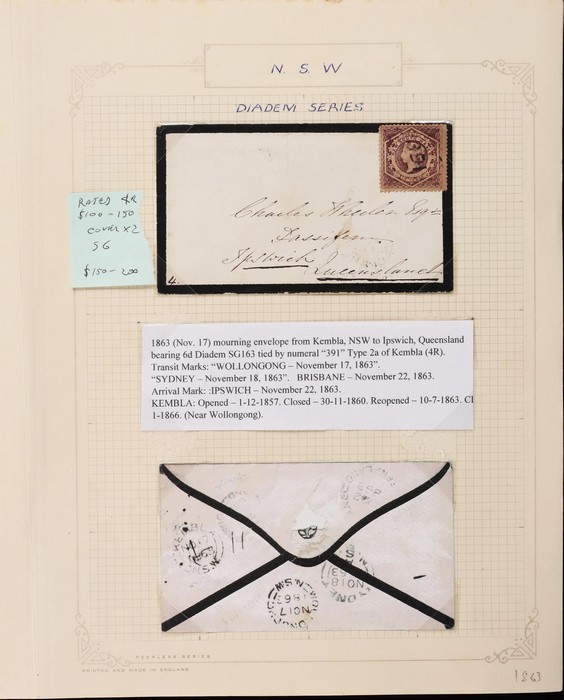 N. S. W
DIADEM SERIES
RATED 4R
$100 - 150
COVER x2
SG
$150 - 200
391
Charles Wheeler Esqre
Fassifern
Ipswich
Queensland
4.
1863 (Nov. 17) mourning envelope from Kembla, NSW to Ipswich, Queensland
bearing 6d Diadem SG163 tied by numeral “391” Type 2a of Kembla (4R).
Transit Marks: “WOLLONGONG – November 17, 1863”.
“SYDNEY – November 18, 1863”. BRISBANE – November 22, 1863.
Arrival Mark: :IPSWICH – November 22, 1863.
KEMBLA: Opened – 1-12-1857. Closed – 30-11-1860. Reopened – 10-7-1863. Cl
1-1866. (Near Wollongong).
N.S.W
NO 18
NO 17
1863
N.S.W
PEERLESS SERIES
PRINTED AND MADE IN ENGLAND
1863